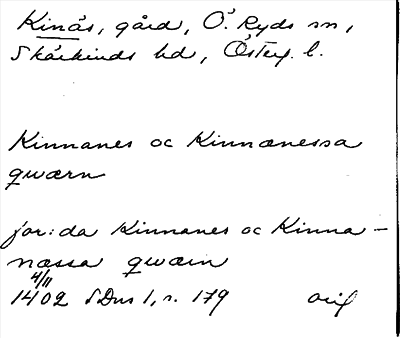 Kinås, gård, Ö. Ryds sn,
Skärkinds hd, Österg. l.
Kinnanes oc Kinnænessa
qwærn
jor:da Kinnanes oc Kinna-
næssa qwærn
4/11
1402 SDns 1, s. 179